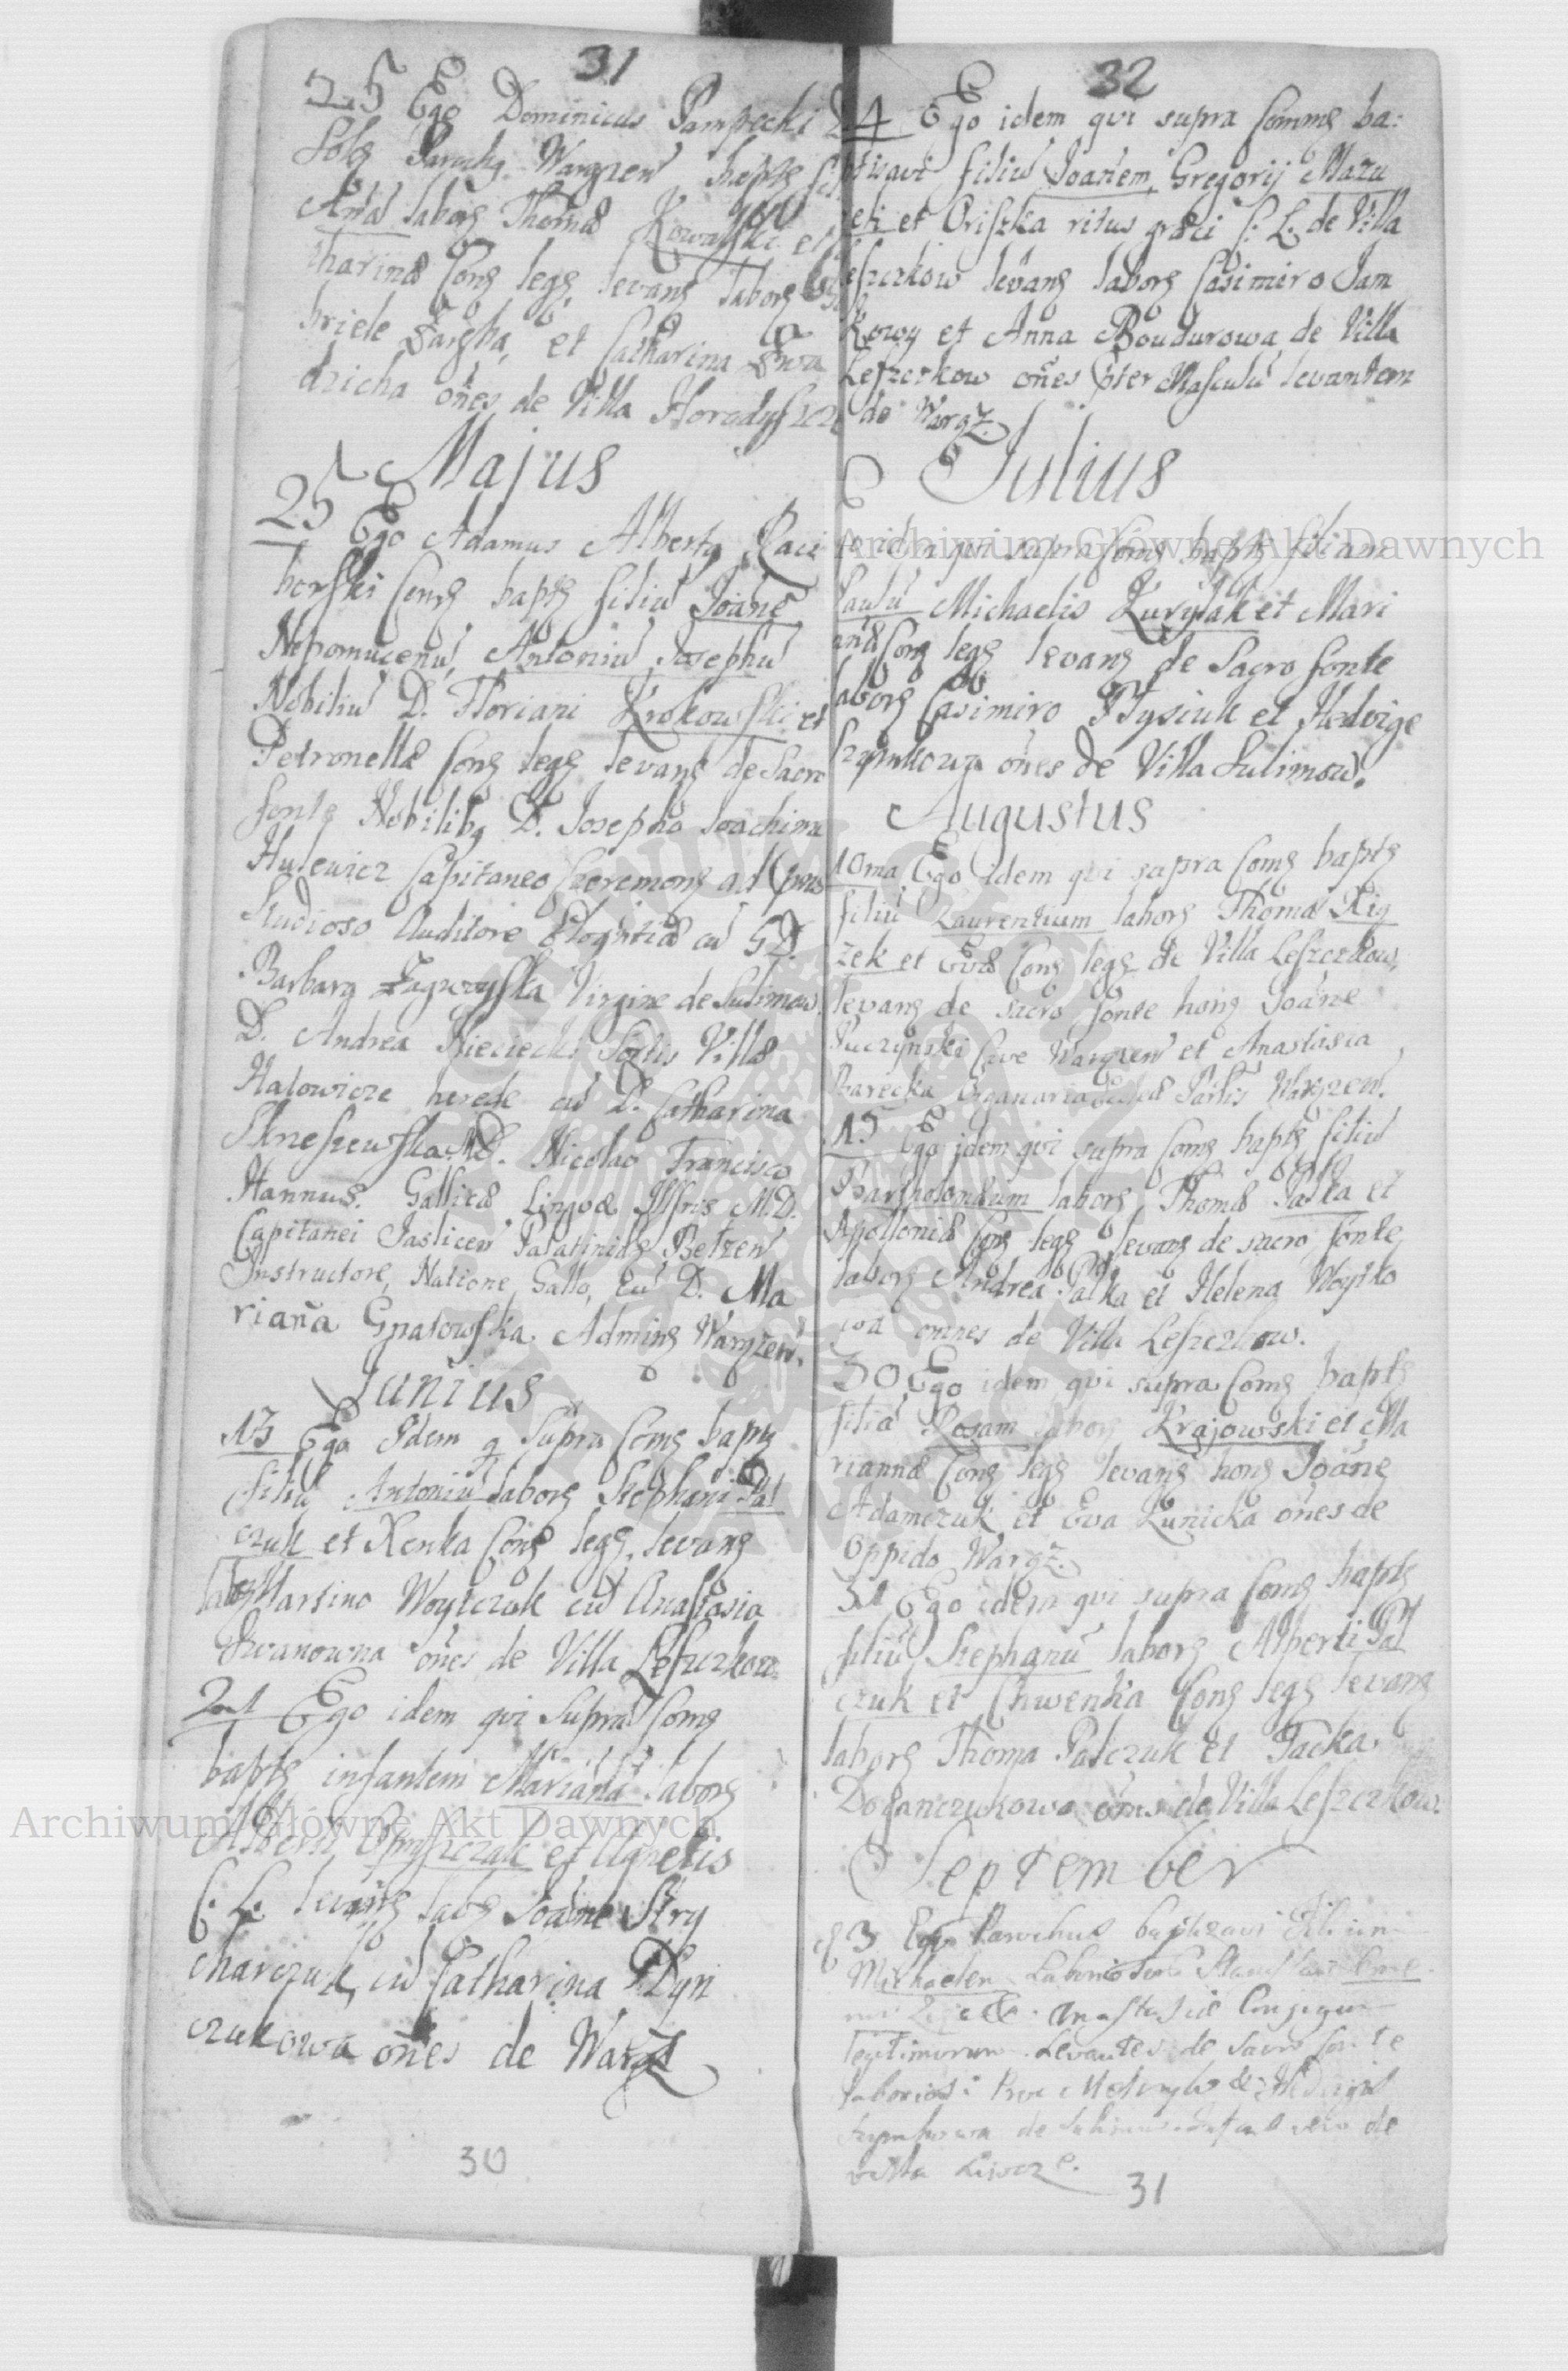 31
25 Ego Dominicus Pampecki
Annā laborꝫ Thomæ Kowalski et
tharinæ Conꝫ legꝫ levanꝫ laborꝫ
briele et Catharina
dzicha oñes de Villa Horodyszcze
Majus
25 Ego Adamus Albertꝰ Raci
borski Comꝫ baptꝫ filiū Joañē
Nepomucenū, Antoniū Josephū
Nobiliū D. Floriani Krokowski et
Petronellæ Conꝫ legꝫ levanꝫ de Sacro
fonte Nobilibꝫ D. Josepho Joachimo
Hulewicz Capitaneo
Studioso Auditore cū G D.
Barbara Zagurzyska Virgine de Sulimow.
D. Andrea Kieciecki Sortis Villæ
Hatowicze herede cū D. Catharina
D. Nicolao Francisco
Hannus. Gallicæ Lingvæ M.D.
Capitanei Jasliceñ Palatinidꝫ Betzeñ
Instructore, Natione Gallo, cū D. Ma
riaña Gnatowska. Adminꝫ Waręzeñ.
Junius
13 Ego Idem q Supra Comꝫ baptꝫ
filiū Antoniū laborꝫ Stephani Pal
czuk et Xenka Conꝫ legꝫ. levanꝫ
labꝫ Martino Woytczuk cū Anastasia
Iwanowna oñes de Villa Leszczkow.
21 Ego idem qvi Supra Comꝫ
baptꝫ infantem Mariānā laborꝫ
Alberti et Agnetis
C. L. levanꝫ labꝫ Joañne Stry
charczuk, cū Catharina Dyri
czukowa oñes de Waręz
30
32
24 Ego idem qvi supra Commꝫ ba:
ptizavi filiū Joañem Gregorij Mazu
reti et Oriszka ritus græci C: L: de Villa
Leszczkow levanꝫ laborꝫ Casimiro Jam
Kowy et Anna Boudurowa de Villa
Leszczkow oñes pter Masculū levantem
de Waręz.
Julius
Ego idem qvi supra Comꝫ baptꝫ filiam
Michaelis Kurylak et Mari
annæ Conꝫ legꝫ levanꝫ de Sacro fonte
laborꝫ Casimiro Tysiuk et Hedvige
oñes de Villa Sulimow.
Augustus
10ma Ego idem qvi supra Comꝫ baptꝫ
filiū Laurentium laborꝫ Thomæ Kią
zek et Evæ Conꝫ legꝫ de Villa Leszczkow,
levanꝫ de sacro fonte honꝫ Joāne
Puczynski Cive Waręzeñ et Anastasia
Barecka Organaria Ecclæ Partis Waręzeñ.
15 Ego idem qvi supra Comꝫ baptꝫ filiū
Bartholomæum laborꝫ Thomæ Palka et
Apolloniæ Conꝫ legꝫ levanꝫ de sacro fonte
laborꝫ Andrea Palka et Helena Woytko
wa omnes de Villa Leszczkow.
30 Ego idem qvi supra Comꝫ baptꝫ
filiā Rosam laborꝫ Krajowski et Ma
riannæ Conꝫ legꝫ levanꝫ honꝫ Joāne
Adamczuk et Eva Kunicka oñes de
Oppido Waręz.
31 Ego idem qvi supra Comꝫ baptꝫ
filiū Stephanū laborꝫ Alberti Pal
czuk et Chwenka Conꝫ legꝫ levanꝫ
laborꝫ Thoma Palczuk et Jacka
Doganczukowa oñes de Villa Leszczkow.
September
3 Ego Parochus baptizavi Filium
Michaelem
Anastasiæ Conjugum
legitimorum. Levantes de Sacro fonte
de
villa
31
Archiwum Główne Akt Dawnych
Archiwum Główne Akt Dawnych